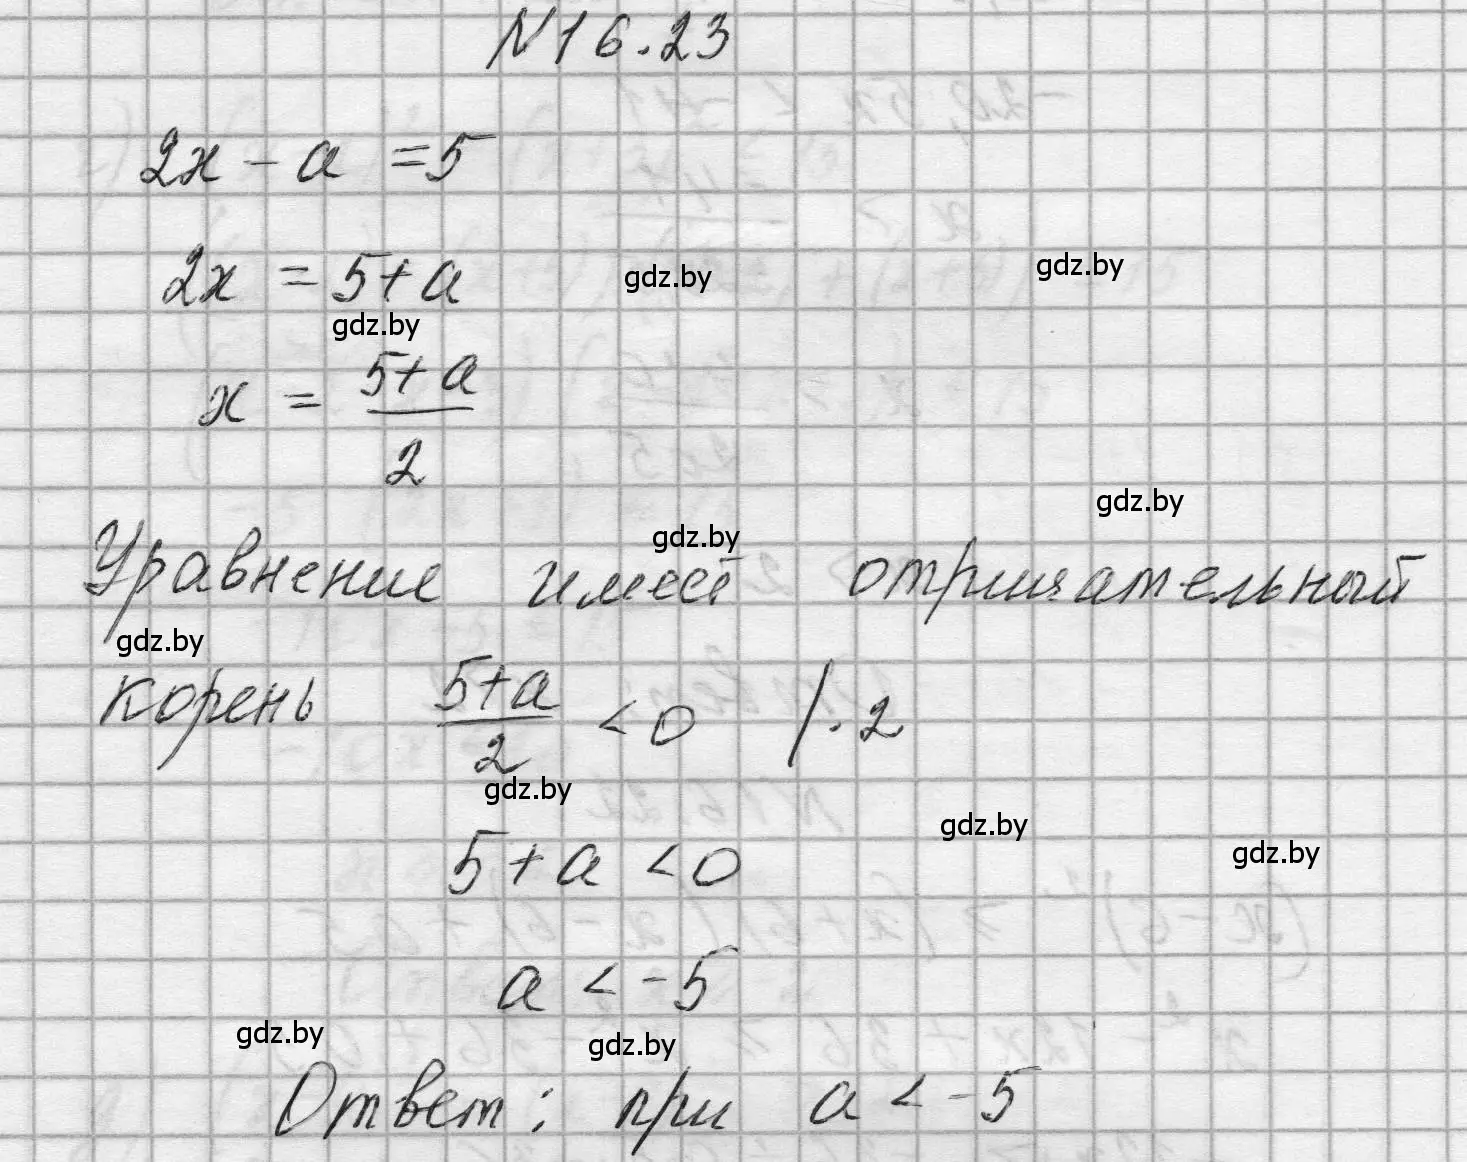 N16.23
2x - a = 5
2x = 5+a
gdz.by
gdz.by
gdz.by
x = (5+a)/2
gdz.by
gdz.by
Уравнение имеет отрицательный
gdz.by
корень (5+a)/2 < 0 /·2
gdz.by
gdz.by
gdz.by
5+a < 0
a < -5
gdz.by
gdz.by
Ответ: при a < -5